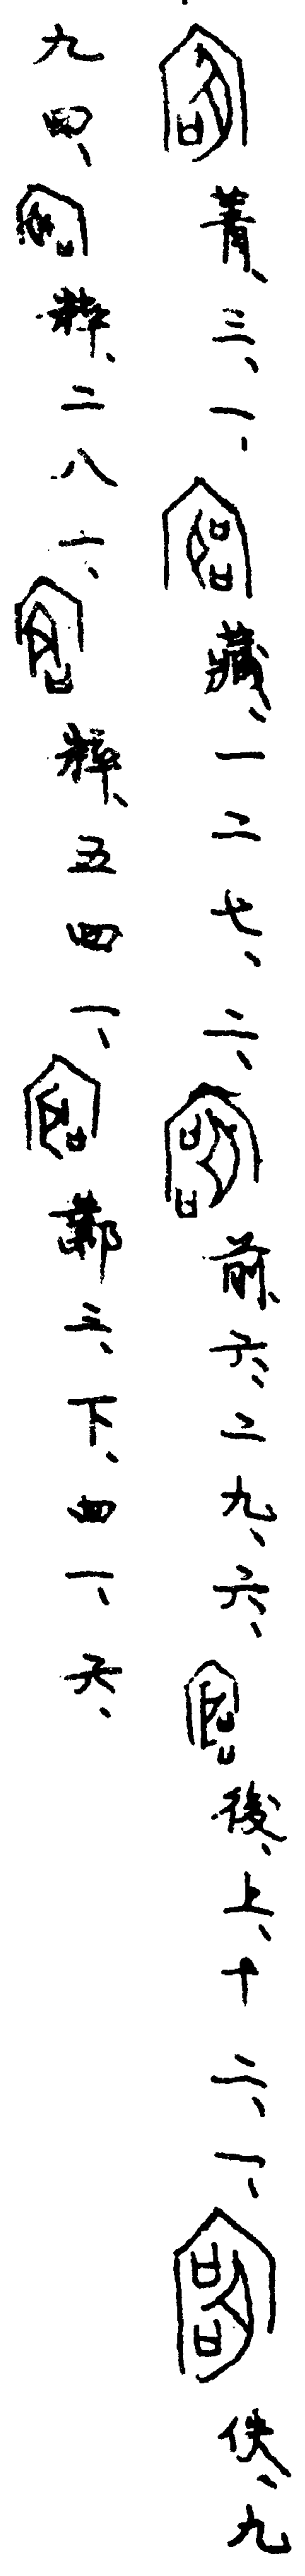 菁、三、一、藏、一二七、二、前、六、二九、六、後、上、十二、一、佚、九
九四、粹、二八一、粹、五四一、鄴三、下、四一、六、